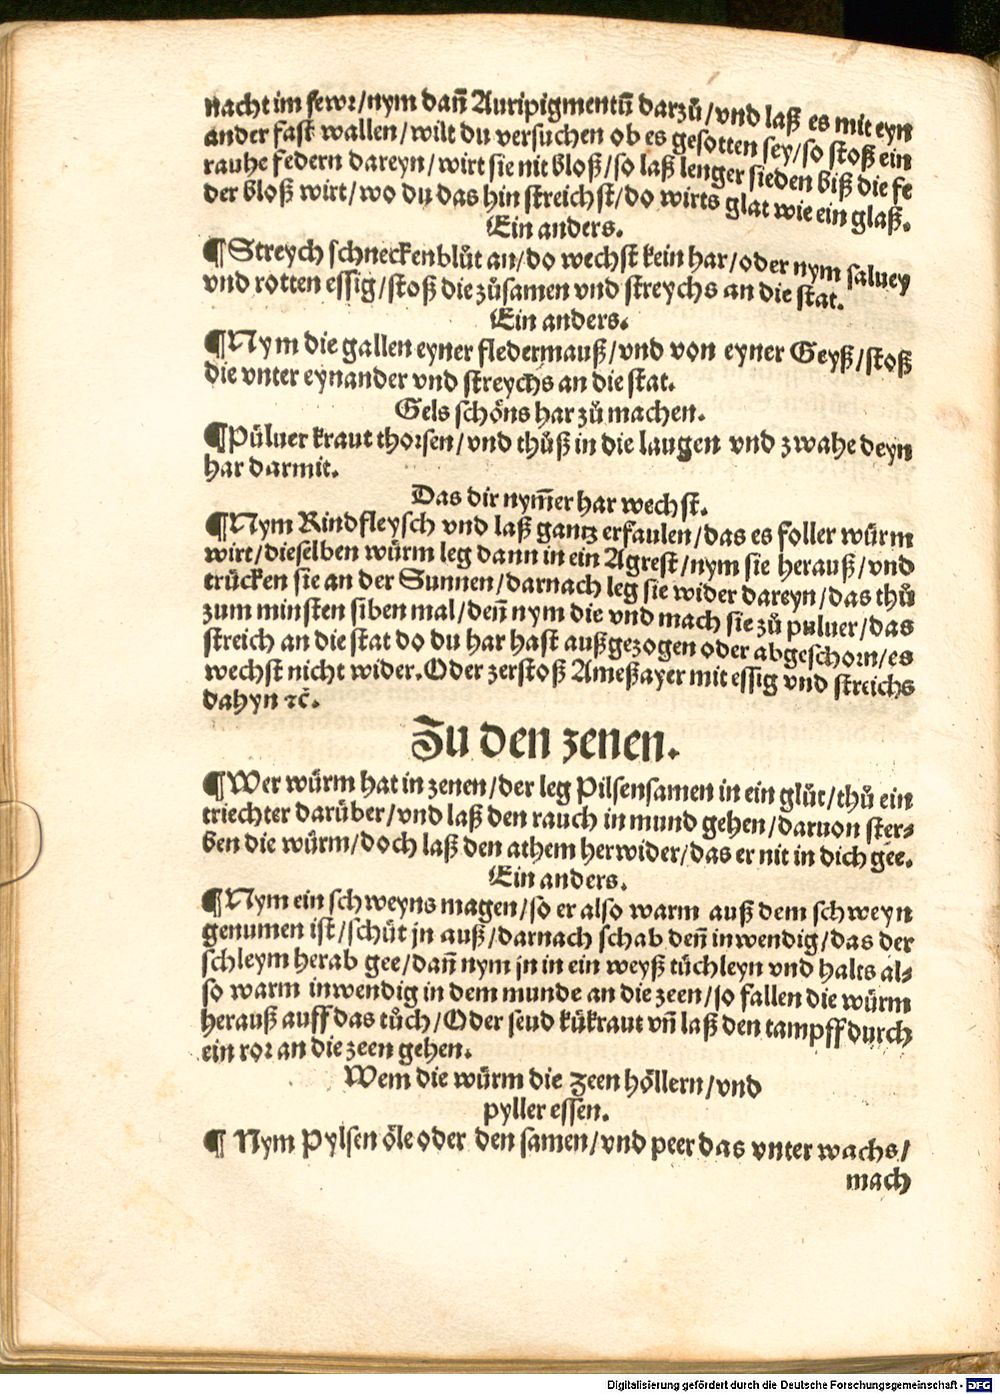 nacht im fewr/nym dañ Auripigmentũ darzů/vnd laß es mit eyn
ander fast wallen/wilt du versuchen ob es gesotten sey/so stoß ein
rauhe federn dareyn/wirt sie nit bloß/so laß lenger sieden biß die fe
der bloß wirt/wo du das hin streichst/do wirts glat wie ein glaß.
Ein anders.
¶Streych schneckenblůt an/do wechst kein har/oder nym saluey
vnd rotten essig/stoß die zůsamen vnd streychs an die stat.
Ein anders.
¶Nym die gallen eyner fledermauß/vnd von eyner Geyß/stoß
die vnter eynander vnd streychs an die stat.
Gels schöns har zů machen.
¶Püluer kraut thorsen/vnd thůß in die laugen vnd zwahe deyn
har darmit.
Das dir nym̃er har wechst.
¶Nym Rindfleysch vnd laß gantz erfaulen/das es foller würm
wirt/dieselben würm leg dann in ein Agrest/nym sie herauß/vnd
trücken sie an der Sunnen/darnach leg sie wider dareyn/das thů
zum minsten siben mal/deñ nym die vnd mach sie zů puluer/das
streich an die stat do du har hast außgezogen oder abgeschorn/es
wechst nicht wider. Oder zerstoß Ameßayer mit essig vnd streichs
dahyn ꝛc̃.
Zu den zenen.
¶Wer würm hat in zenen/der leg Pilsensamen in ein glůt/thů ein
triechter darüber/vnd laß den rauch in mund gehen/daruon ster⸗
ben die würm/doch laß den athem herwider/das er nit in dich gee.
Ein anders.
¶Nym ein schweyns magen/so er also warm auß dem schweyn
genumen ist/schüt jn auß/darnach schab deñ inwendig/das der
schleym herab gee/dañ nym jn in ein weyß tüchleyn vnd halts al⸗
so warm inwendig in dem munde an die zeen/so fallen die würm
herauß auff das tůch/Oder seud kükraut vñ laß den tampff durch
ein ror an die zeen gehen.
Wem die würm die zeen höllern/vnd
pyller essen.
¶ Nym Pylsen öle oder den samen/vnd peer das vnter wachs/
mach
Digitalisierung gefördert durch die Deutsche Forschungsgemeinschaft - DFG